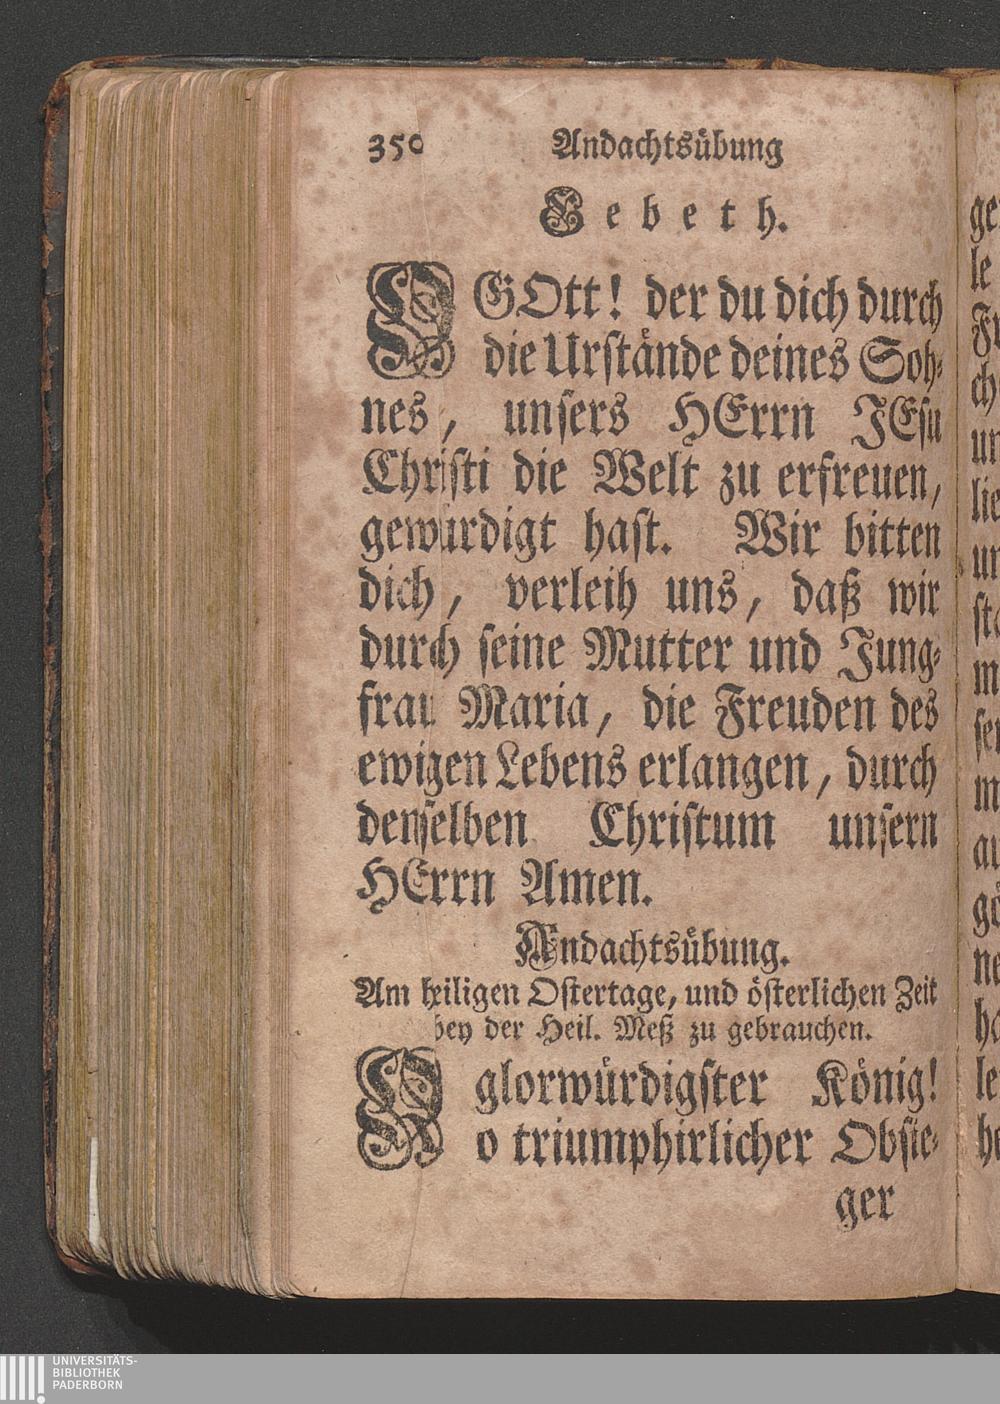 350 Andachtsübung
Gebeth.
O GOtt! der du dich durch
die Urstände deines Soh-
nes, unsers HErrn JEsu
Christi die Welt zu erfreuen,
gewürdigt hast. Wir bitten
dich, verleih uns, daß wir
durch seine Mutter und Jung-
frau Maria, die Freuden des
ewigen Lebens erlangen, durch
denselben Christum unsern
HErrn Amen.
Andachtsübung.
Am heiligen Ostertage, und österlichen Zeit
bey der Heil. Meß zu gebrauchen.
O glorwürdigster König!
o triumphirlicher Obsie-
ger
UNIVERSITÄTS-
BIBLIOTHEK
PADERBORN